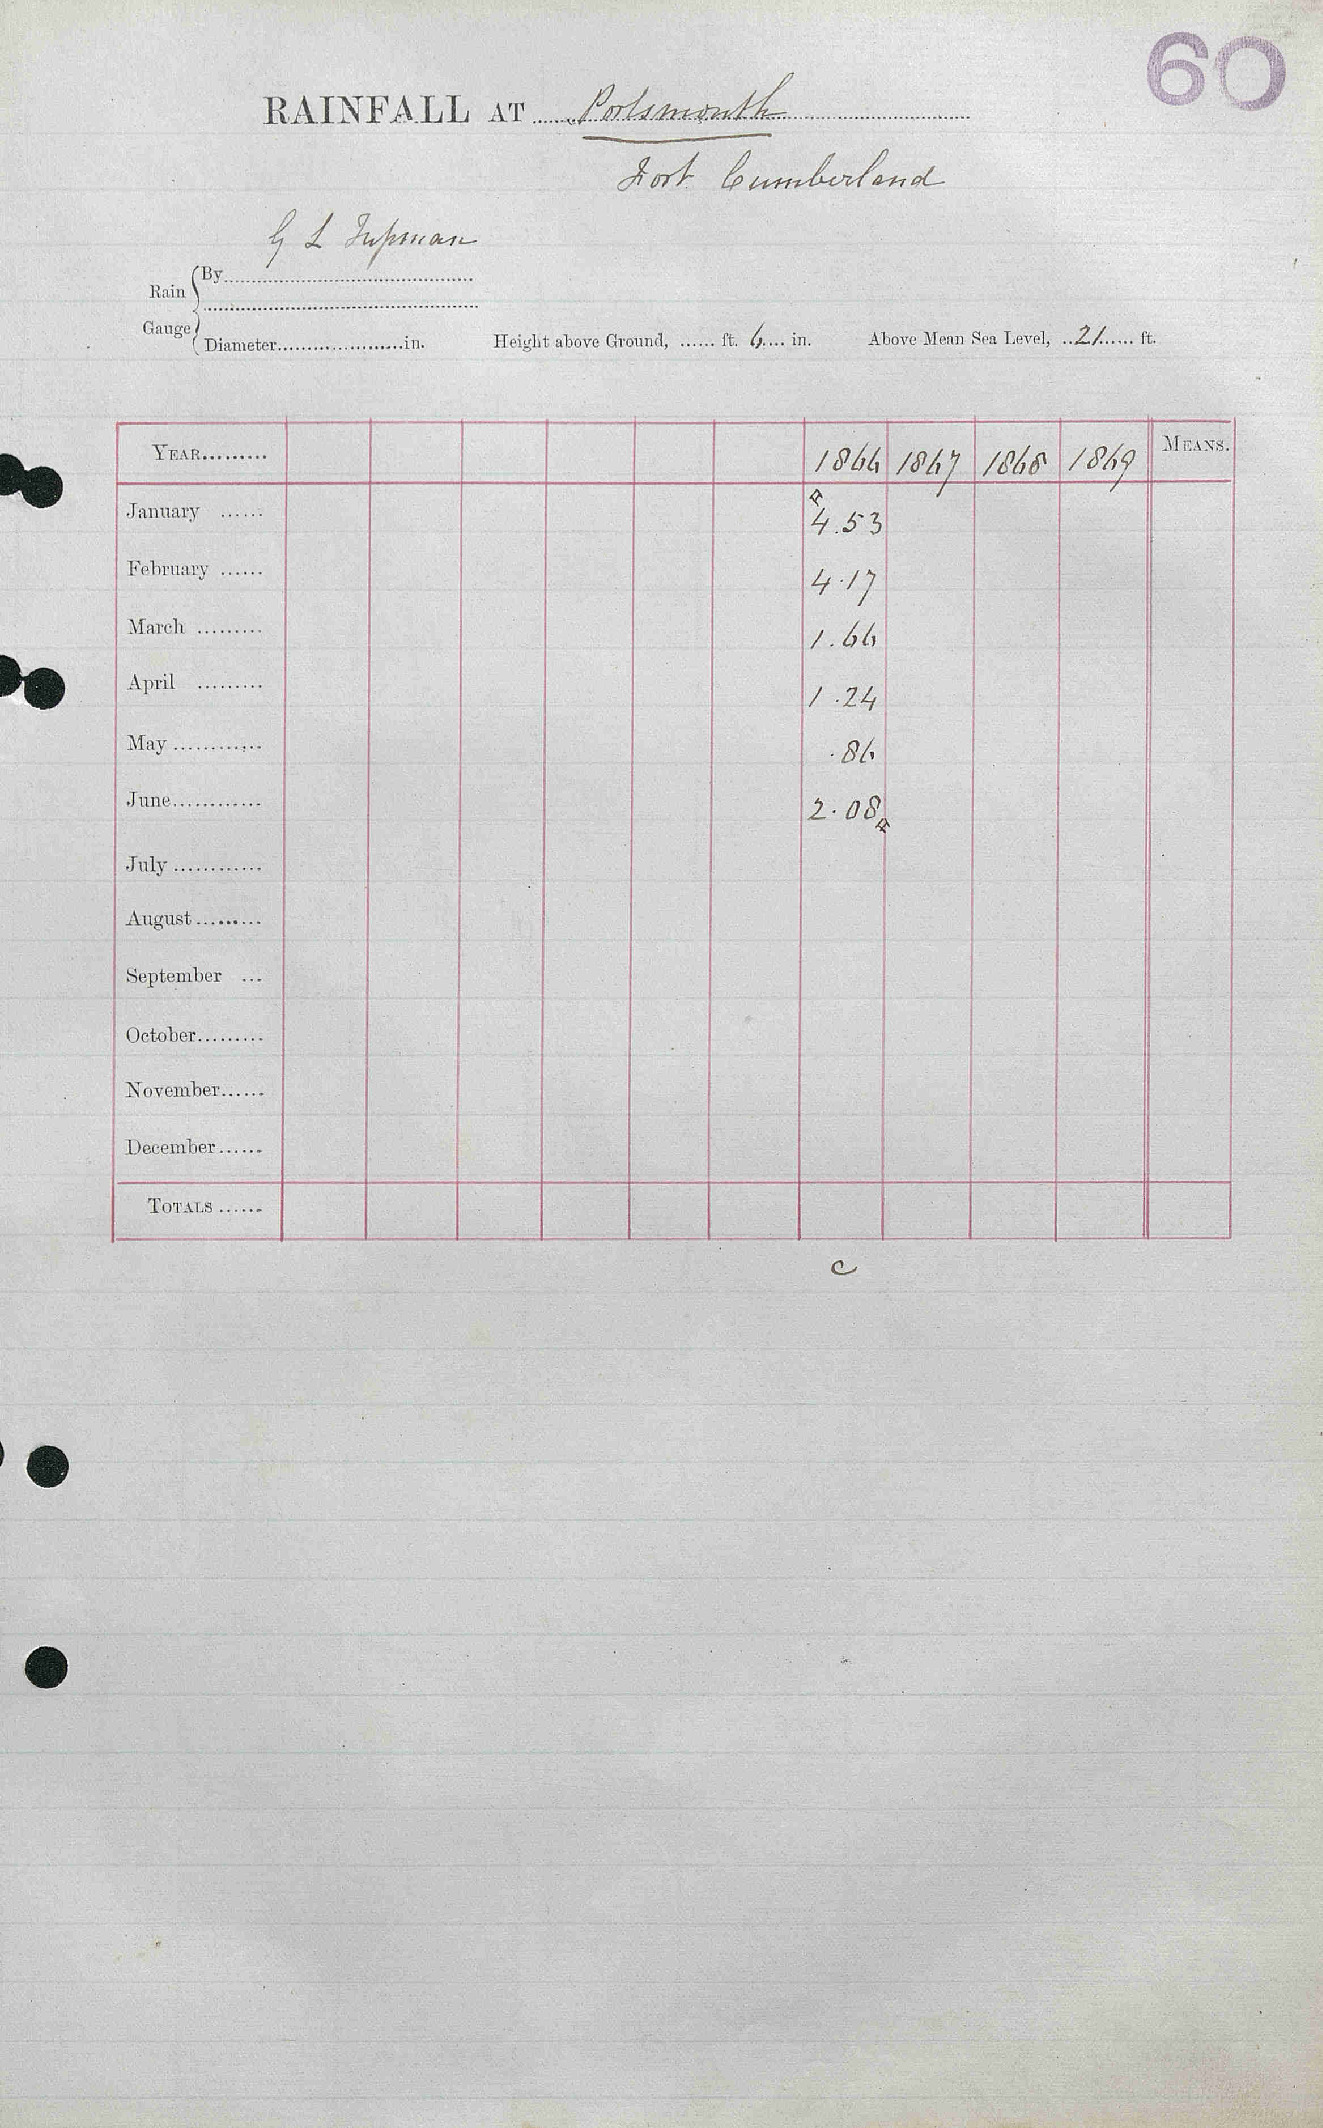 60
RAINFALL AT ...... Portsmouth ......
Fort Cumberland
G L Tupman
Rain Gauge { By ......
Diameter ...... in. Height above Ground, ...... ft. 6 .... in. Above Mean Sea Level, .. 21 ...... ft.
YEAR ......... 1866 1867 1868 1869 MEANS.
January ...... 4.53
February ...... 4.17
March ......... 1.66
April ......... 1.24
May ............ .86
June ............ 2.08
July ............
August .........
September ...
October .........
November ......
December ......
TOTALS ......
c